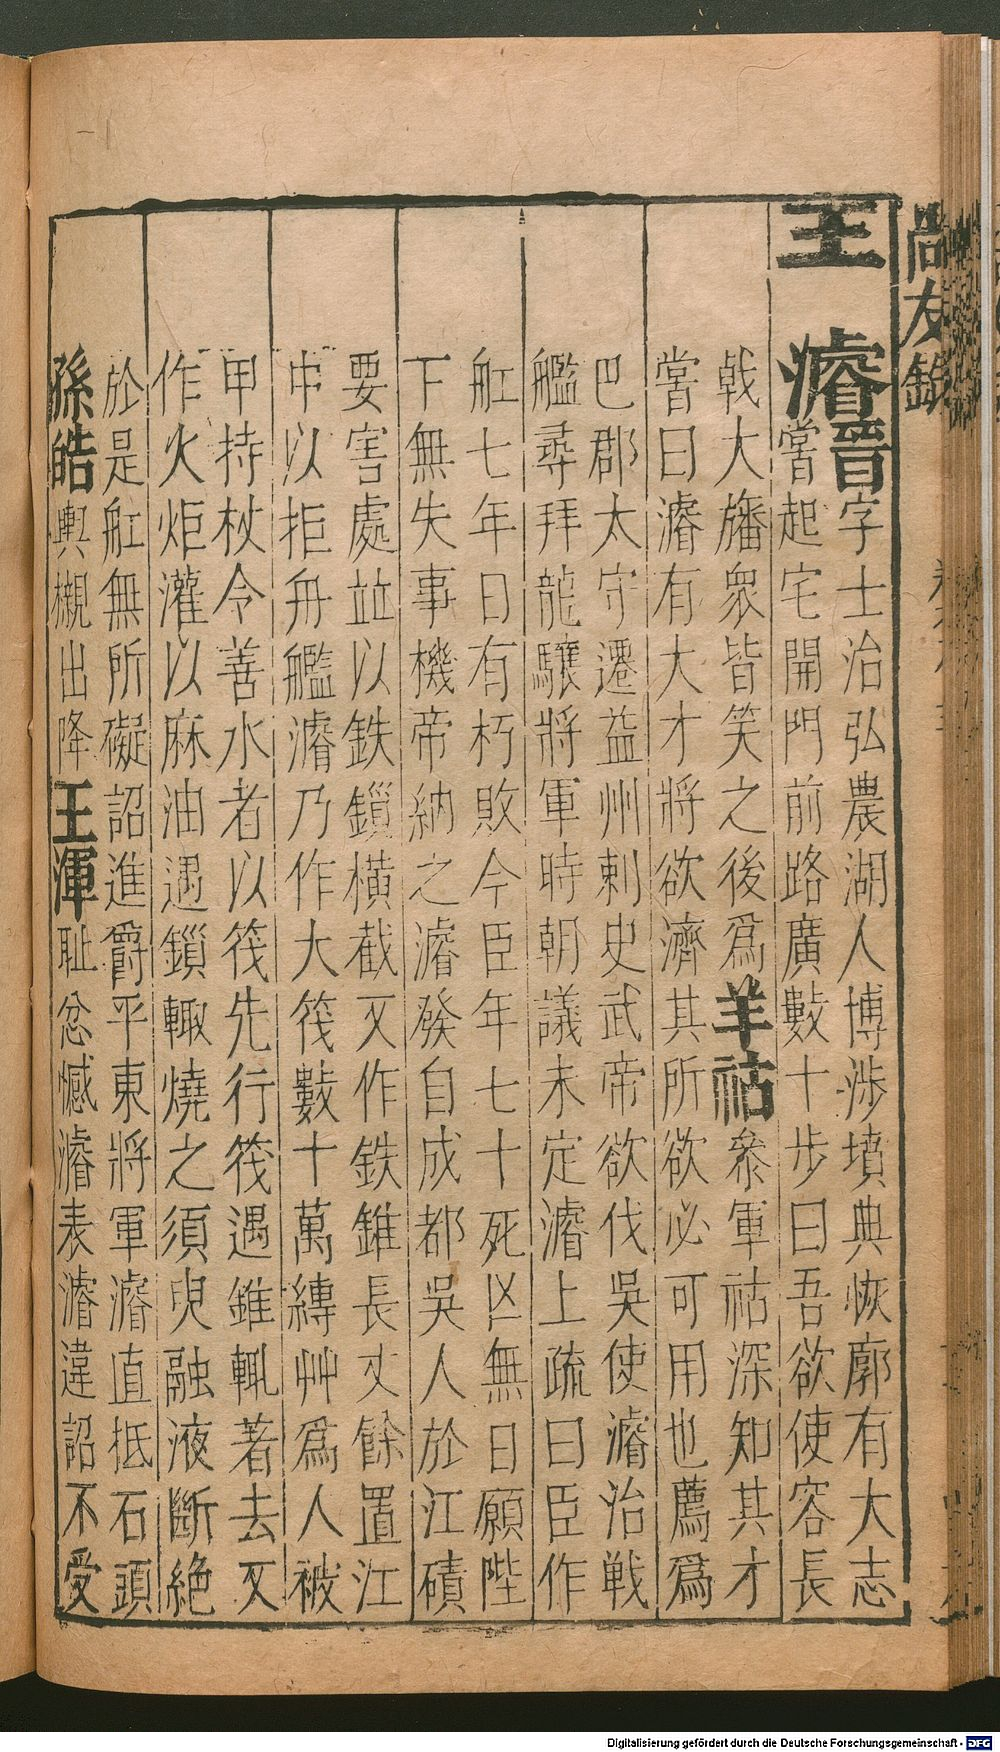 尚友錄
王濬
晉字士治弘農湖人博涉墳典恢廓有大志
嘗起宅開門前路廣數十步曰吾欲使容長
戟大旛衆皆笑之後爲羊祜叅軍祜深知其才
嘗曰濬有大才將欲濟其所欲必可用也薦爲
巴郡太守遷益州刺史武帝欲伐吳使濬治戦
艦尋拜龍驤將軍時朝議未定濬上疏曰臣作
舡七年日有朽敗今臣年七十死凶無日願陛
下無失事機帝納之濬發自成都吳人於江磧
要害處竝以鉄鎖橫截又作鉄錐長丈餘置江
中以拒舟艦濬乃作大筏數十萬縛艸爲人被
甲持杖令善水者以筏先行筏遇錐輒著去又
作火炬灌以麻油遇鎖輙燒之須臾融液斷絶
於是舡無所礙詔進爵平東將軍濬直抵石頭
孫皓輿櫬出降王渾耻忿憾濬表濬違詔不受
Digitalisierung gefördert durch die Deutsche Forschungsgemeinschaft - DFG